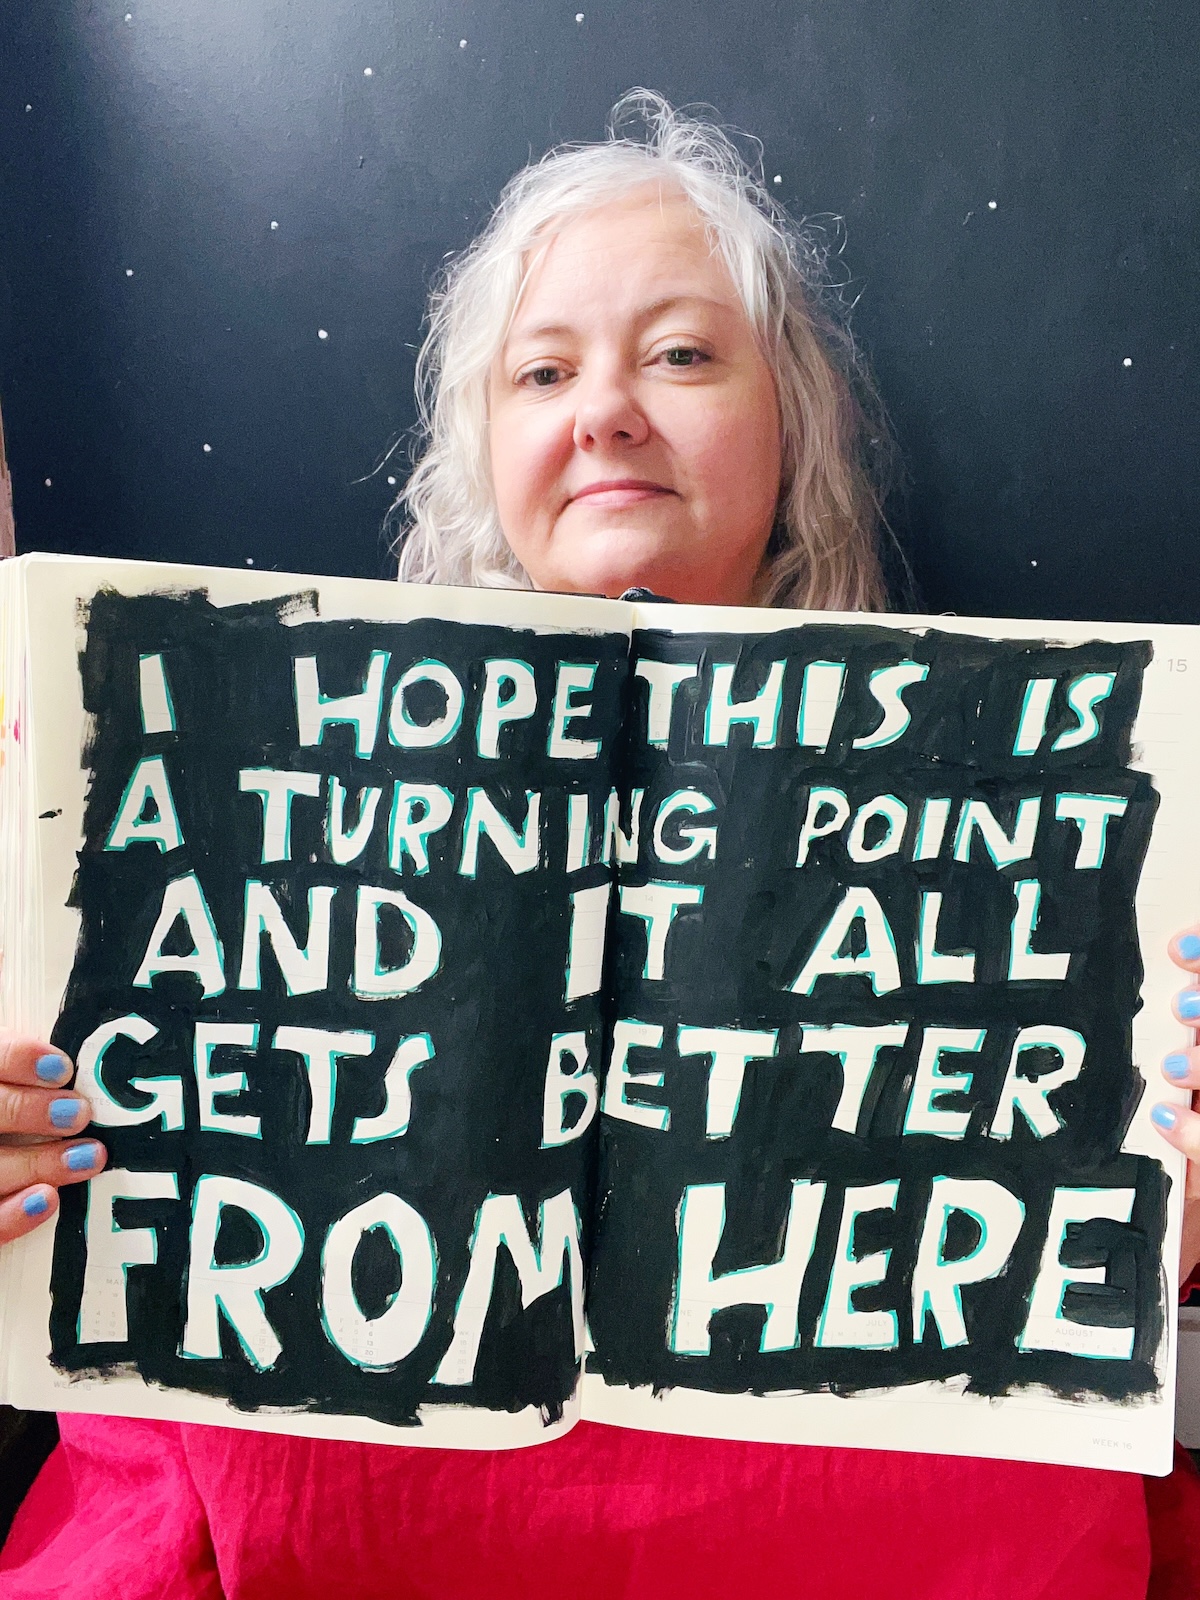 I HOPE THIS IS
A TURNING POINT
AND IT ALL
GETS BETTER
FROM HERE
15
14
JULY
AUGUST
WEEK 16
WEEK 16